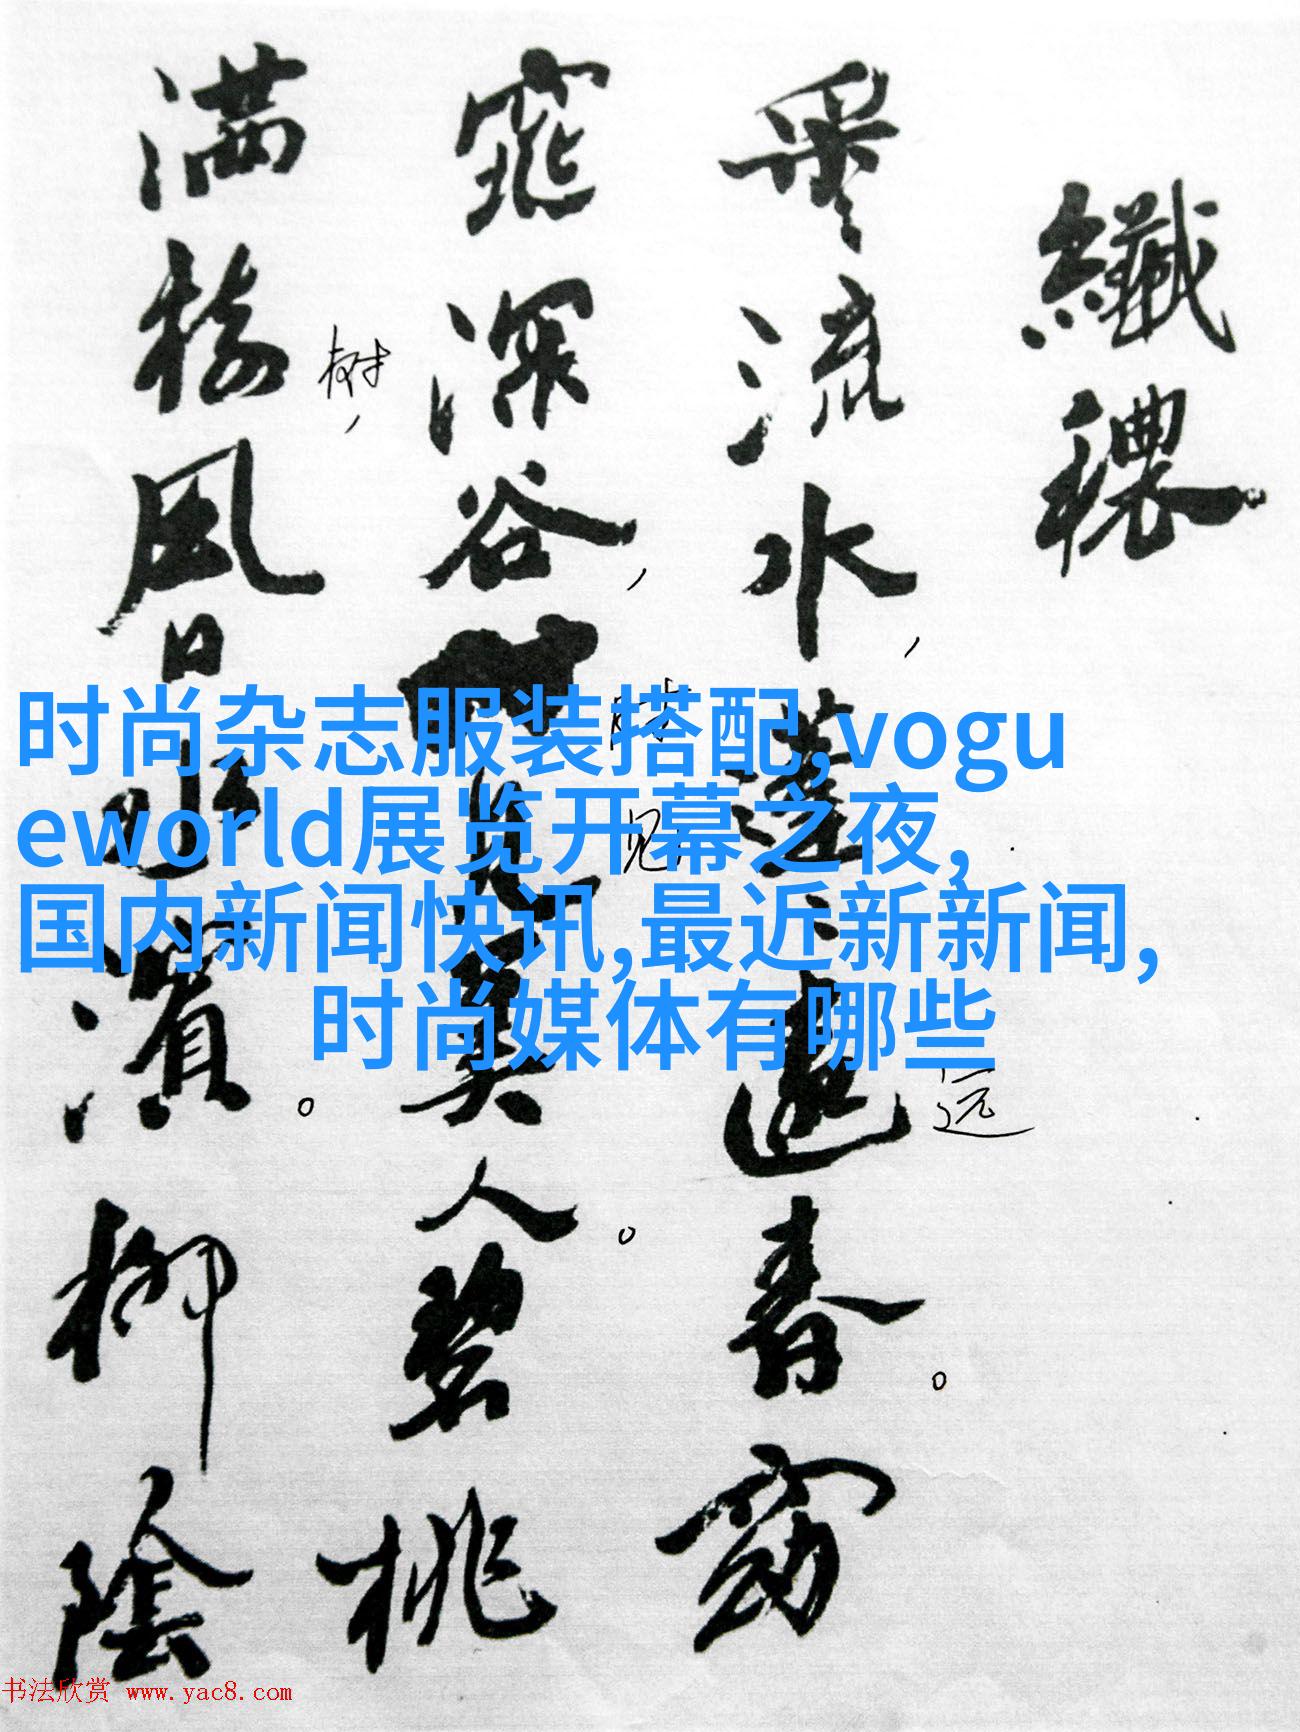 纖穠
采〻流水，蓬〻遠春。窈
远
窕深谷，見美人。碧桃
时
见
满樹風日水濱。柳陰
树，
时尚杂志服装搭配,vogu
eworld展览开幕之夜,
国内新闻快讯,最近新新闻,
时尚媒体有哪些
书法欣赏 www.yac8.com